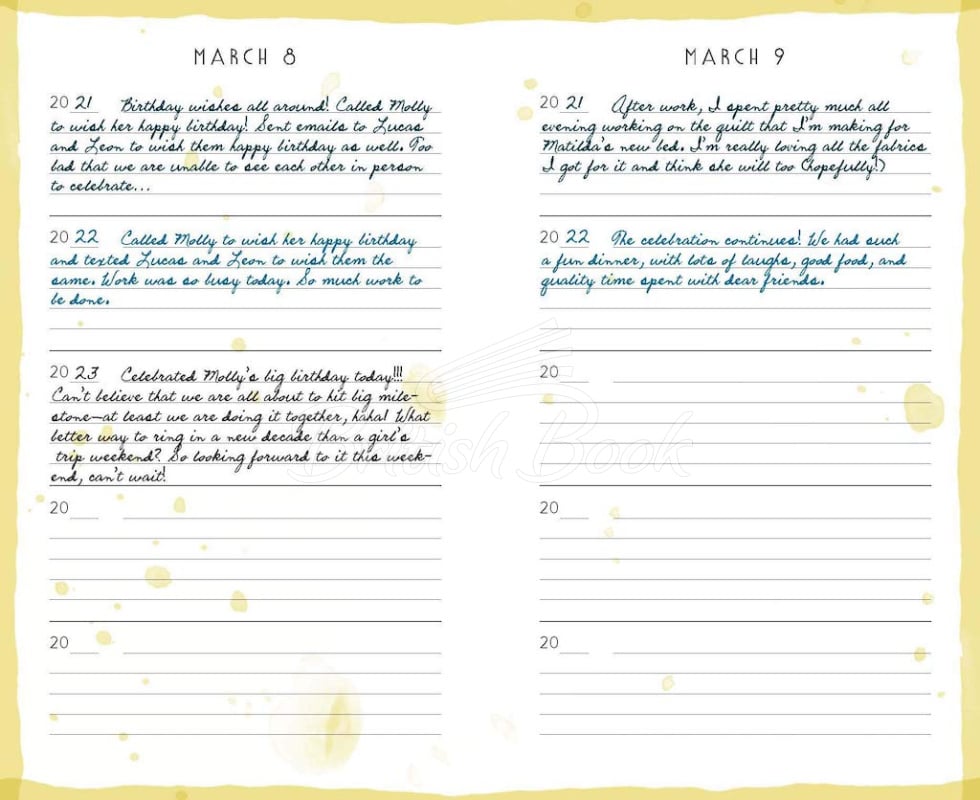 MARCH 8
20 21 Birthday wishes all around! Called Molly
to wish her happy birthday! Sent emails to Lucas
and Leon to wish them happy birthday as well. Too
bad that we are unable to see each other in person
to celebrate...
20 22 Called Molly to wish her happy birthday
and texted Lucas and Leon to wish them the
same. Work was so busy today. So much work to
be done.
20 23 Celebrated Molly's big birthday today!!!
Can't believe that we are all about to hit big mile-
stone—at least we are doing it together, haha! What
better way to ring in a new decade than a girl's
trip weekend? So looking forward to it this week-
end, can't wait!
20
20
MARCH 9
20 21 After work, I spent pretty much all
evening working on the quilt that I'm making for
Matilda's new bed. I'm really loving all the fabrics
I got for it and think she will too (hopefully!)
20 22 The celebration continues! We had such
a fun dinner, with lots of laughs, good food, and
quality time spent with dear friends.
20
20
20
British Book